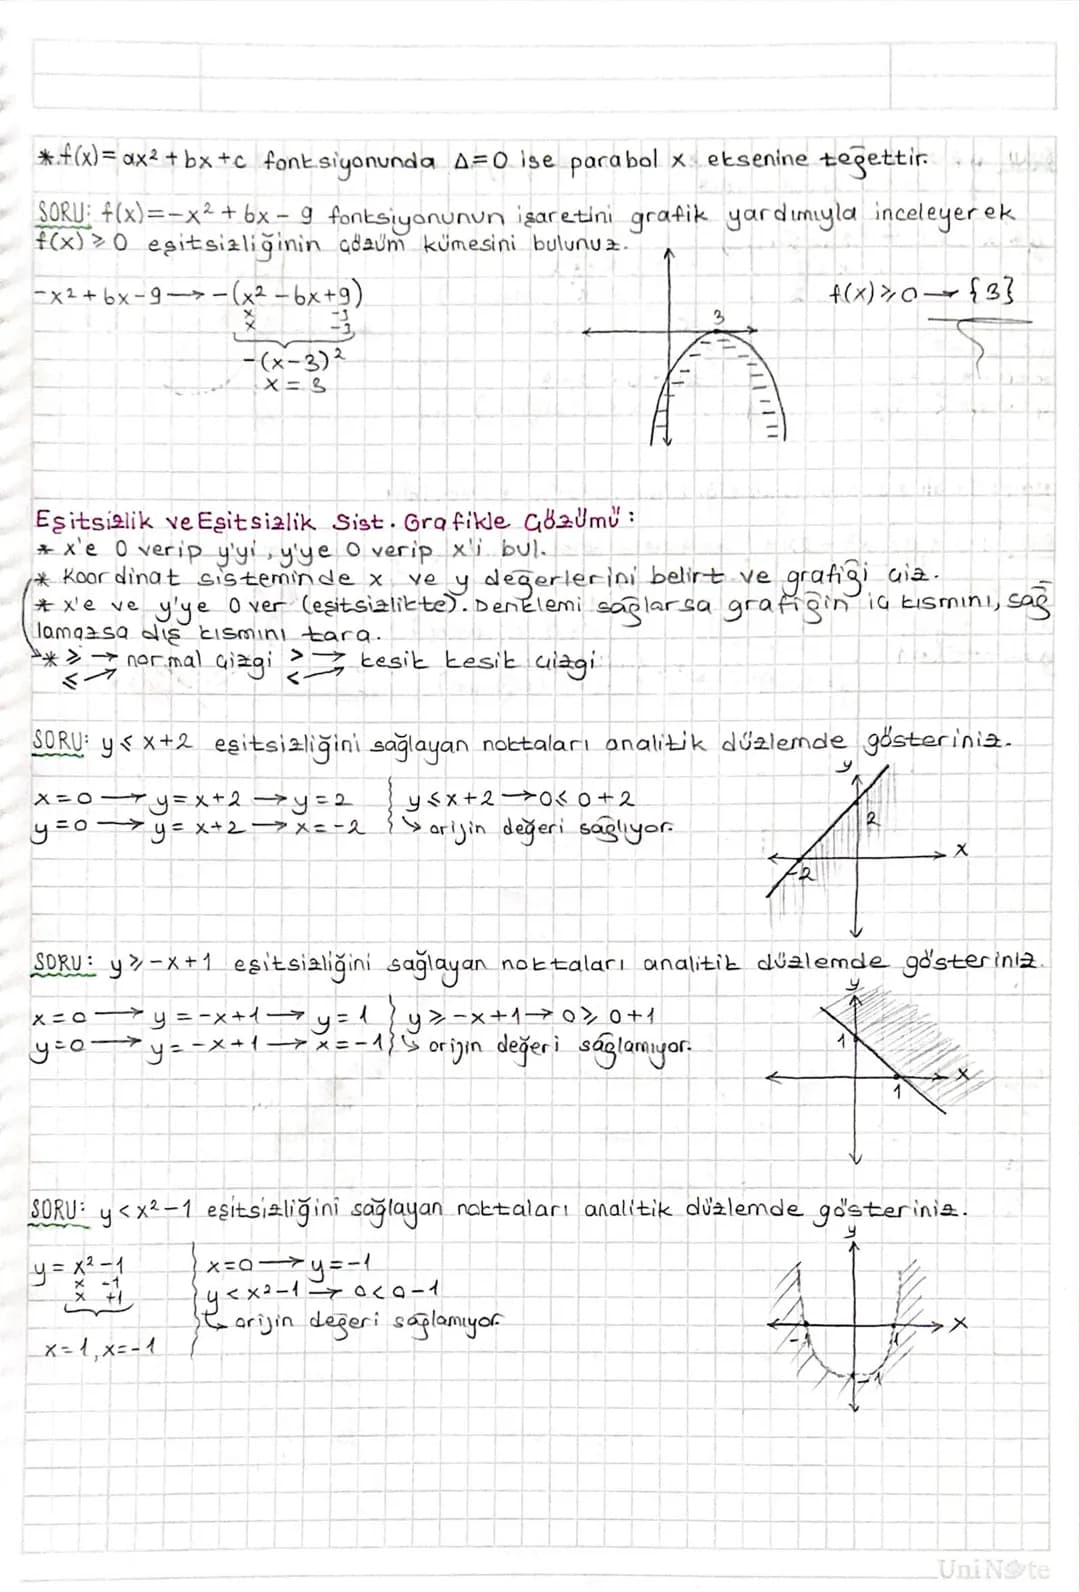 *.f(x)=ax²+bx+c fonksiyonunda Δ=0 ise parabol x eksenine teğettir.
SORU: f(x)=-x²+6x-9 fonksiyonunun işaretini grafik yardımıyla inceleyerek
f(x)≥0 eşitsizliğinin çözüm kümesini bulunuz.
-x²+6x-9→-(x²-6x+9)
x -3
x -3
-(x-3)²
x=3
3
f(x)≥0→{3}
Eşitsizlik ve Eşitsizlik Sist. Grafikle Çözümü:
* x'e 0 verip y'yi, y'ye 0 verip x'i bul.
* Koordinat sisteminde x ve y değerlerini belirt ve grafiği çiz.
* x'e ve y'ye 0 ver (eşitsizlikte). Denklemi sağlarsa grafiğin iç kısmını, sağ
lamazsa dış kısmını tara.
* ≥ → normal çizgi > → kesik kesik çizgi
≤ → < →
SORU: y≤x+2 eşitsizliğini sağlayan noktaları analitik düzlemde gösteriniz.
x=0→y=x+2→y=2 } y≤x+2→0≤0+2
y=0→y=x+2→x=-2 } ↳ orijin değeri sağlıyor.
y
2
x
-2
SORU: y≥-x+1 eşitsizliğini sağlayan noktaları analitik düzlemde gösteriniz.
x=0→y=-x+1→y=1 } y≥-x+1→0≥0+1
y=0→y=-x+1→x=-1 } ↳ orijin değeri sağlamıyor.
y
1
x
1
SORU: y<x²-1 eşitsizliğini sağlayan noktaları analitik düzlemde gösteriniz.
y=x²-1
x -1
x +1
x=1, x=-1
x=0→y=-1
y<x²-1→0<0-1
↳ orijin değeri sağlamıyor
y
x
-1
1
-1
UniNote